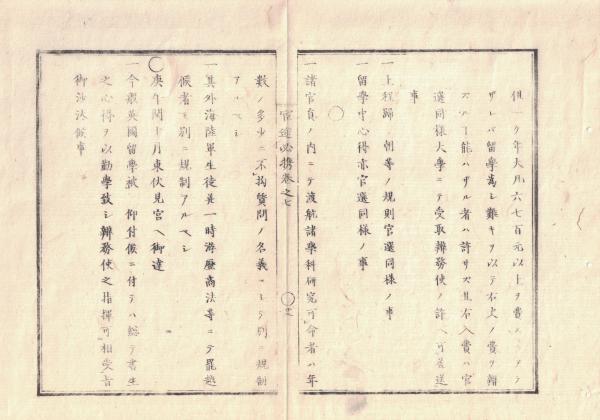 但一ケ年大凡六七百元以上ヲ費サヽレ
サレバ留學爲シ難キヲ以テ右大ノ費ヲ辨
スル丁能ハサル者ハ許サス且右入費ハ官
選同樣大學ニテ受取辨務使ノ許ヘ可差送
事
一上程歸朝等ノ規則官選同樣ノ事
一留學中心得亦官選同樣ノ事
○
一諸官員ノ内ニテ渡航諸學科研究可命者ハ年
官途必携卷之七
數ノ多少ニ不拘質問ノ名義ニシテ別ニ規制
アルヘシ
一其外海陸軍生徒并一時游歴商法等ニテ罷越
候者ハ別ニ規制アルヘシ
○庚午閏十月東伏見宮ヘ御達
一今般英國留學被 仰付候ニ付テハ總テ書生
之心得ヲ以勤學致シ辨務使之指揮可相受旨
御沙汰候事